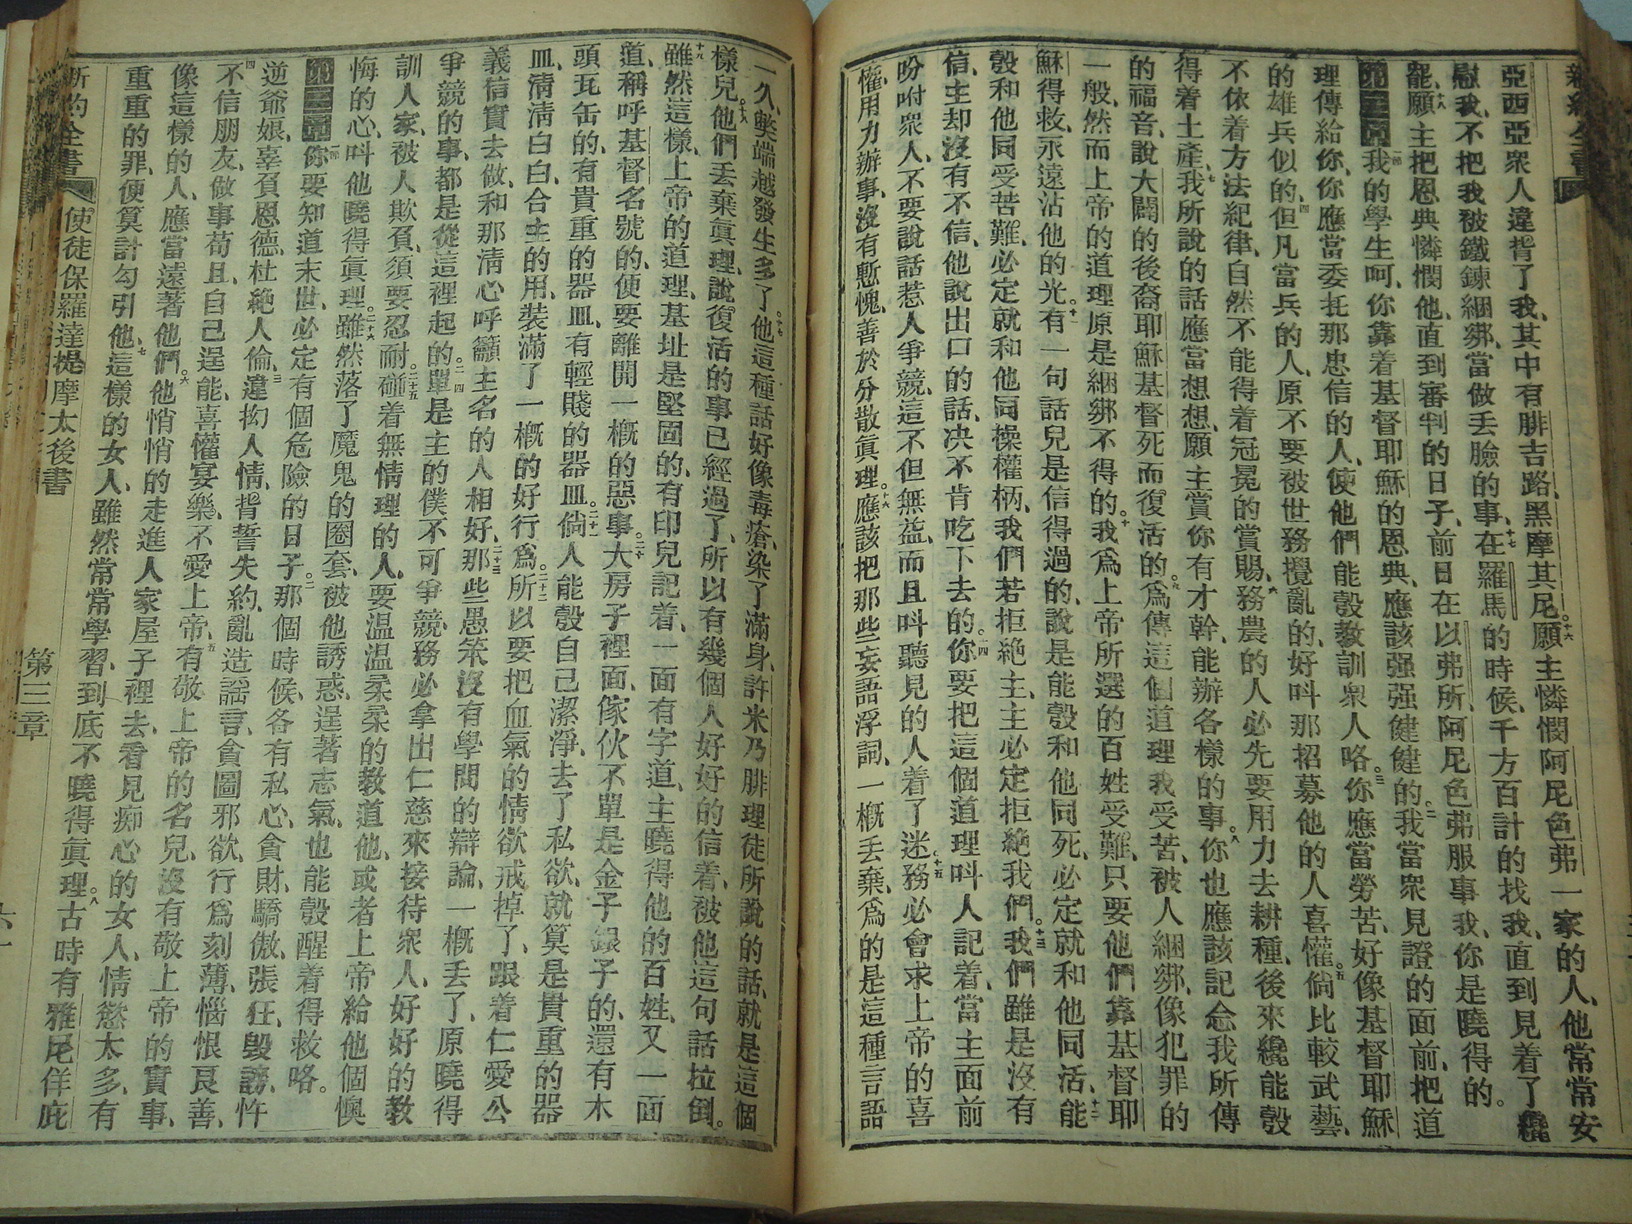 亞西亞衆人違背了我、其中有腓吉路、黑摩其尼。十六願主憐憫阿尼色弗一家的人、他常常安
慰我、不把我被鐵鍊綑綁、當做丟臉的事、十七在羅馬的時候、千方百計的找我、直到見着了纔
罷、十八願主把恩典憐憫他、直到審判的日子、前日在以弗所、阿尼色弗服事我、你是曉得的。
第二章 一節我的學生呵、你靠着基督耶穌的恩典、應該强强健健的、二我當衆見證的面前、把道
理傳給你、你應當委托那忠信的人、使他們能彀敎訓衆人咯。三你應當勞苦、好像基督耶穌
的雄兵似的、四但凡當兵的人、原不要被世務攪亂的、好呌那招募他的人喜懽。五倘比較武藝、
不依着方法紀律、自然不能得着冠冕的賞賜、六務農的人必先要用力去耕種、後來纔能彀
得着土產、七我所說的話應當想想、願主賞你有才幹、能辦各樣的事。八你也應該記念我所傳
的福音、說大闢的後裔耶穌基督死而復活的。九爲傳這個道理我受苦、被人綑綁、像犯罪的
一般、然而上帝的道理原是綑綁不得的。十我爲上帝所選的百姓受難、只要他們靠基督耶
穌得救、永遠沾他的光。十一有一句話兒是信得過的、說是能彀和他同死、必定就和他同活、十二能
彀和他同受苦難、必定就和他同操權柄、我們若拒絶主、主必定拒絶我們。十三我們雖是沒有
信、主却沒有不信、他說出口的話、决不肯吃下去的。十四你要把這個道理呌人記着、當主面前
吩咐衆人、不要說話惹人爭競、這不但無益、而且呌聽見的人着了迷、十五務必會求上帝的喜
懽、用力辦事、沒有慙愧、善於分散眞理。十六應該把那些妄語浮詞、一槪丟棄、爲的是這種言語
一久、獘端越發生多了。十七他這種話好像毒瘡、染了滿身、許米乃腓理徒所說的話、就是這個
樣兒。十八他們丟棄眞理、說復活的事已經過了、所以有幾個人好好的信着、被他這句話拉倒。
十九雖然這樣、上帝的道理、基址是堅固的、有印兒記着、一面有字道、主曉得他的百姓、又一面
道、稱呼基督名號的、便要離開一槪的惡事。二十大房子裡面、傢伙不單是金子銀子的、還有木
頭瓦缶的、有貴重的器皿、有輕賤的器皿。二十一倘人能彀自己潔淨、去了私欲、就算是貴重的器
皿、淸淸白白、合主的用、裝滿了一槪的好行爲。二十二所以要把血氣的情欲戒掉了、跟着仁愛公
義信實去做、和那淸心呼籲主名的人相好、二十三那些愚笨沒有學問的辯論、一槪丟了、原曉得
爭競的事、都是從這裡起的。二十四單是主的僕不可爭競、務必拿出仁慈來接待衆人、好好的敎
訓人家、被人欺負、須要忍耐。二十五碰着無情理的人、要温温柔柔的敎道他、或者上帝給他個懊
悔的心、呌他曉得眞理。二十六雖然落了魔鬼的圈套、被他誘惑、逞著志氣、也能彀醒着得救咯。
第三章 一節你要知道末世、必定有個危險的日子。二那個時候、各有私心、貪財、驕傲、張狂、毀謗、忤
逆爺娘、辜負恩德、杜絶人倫、三違拗人情、背誓失約、亂造謡言、貪圖邪欲、行爲刻薄、惱恨良善、
四不信朋友、做事苟且、自己逞能、喜懽宴樂、不愛上帝、五有敬上帝的名兒、沒有敬上帝的實事、
像這樣的人、應當遠著他們。六他悄悄的走進人家屋子裡去、看見痴心的女人、情慾太多、有
重重的罪、便算計勾引他、七這樣的女人、雖然常常學習、到底不曉得眞理。八古時有雅尼佯庇
新約全書 使徒保羅達提摩太後書 第三章 六十